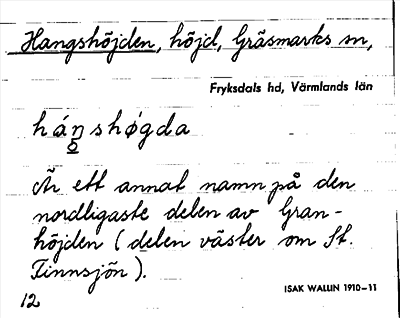 Hangshöjden, höjd, Gräsmarks sn,
Fryksdals hd, Värmlands län
háŋshǿgda
Är ett annat namn på den
nordligaste delen av Gran-
höjden (delen väster om St.
Finnsjön).
12
ISAK WALLIN 1910–11